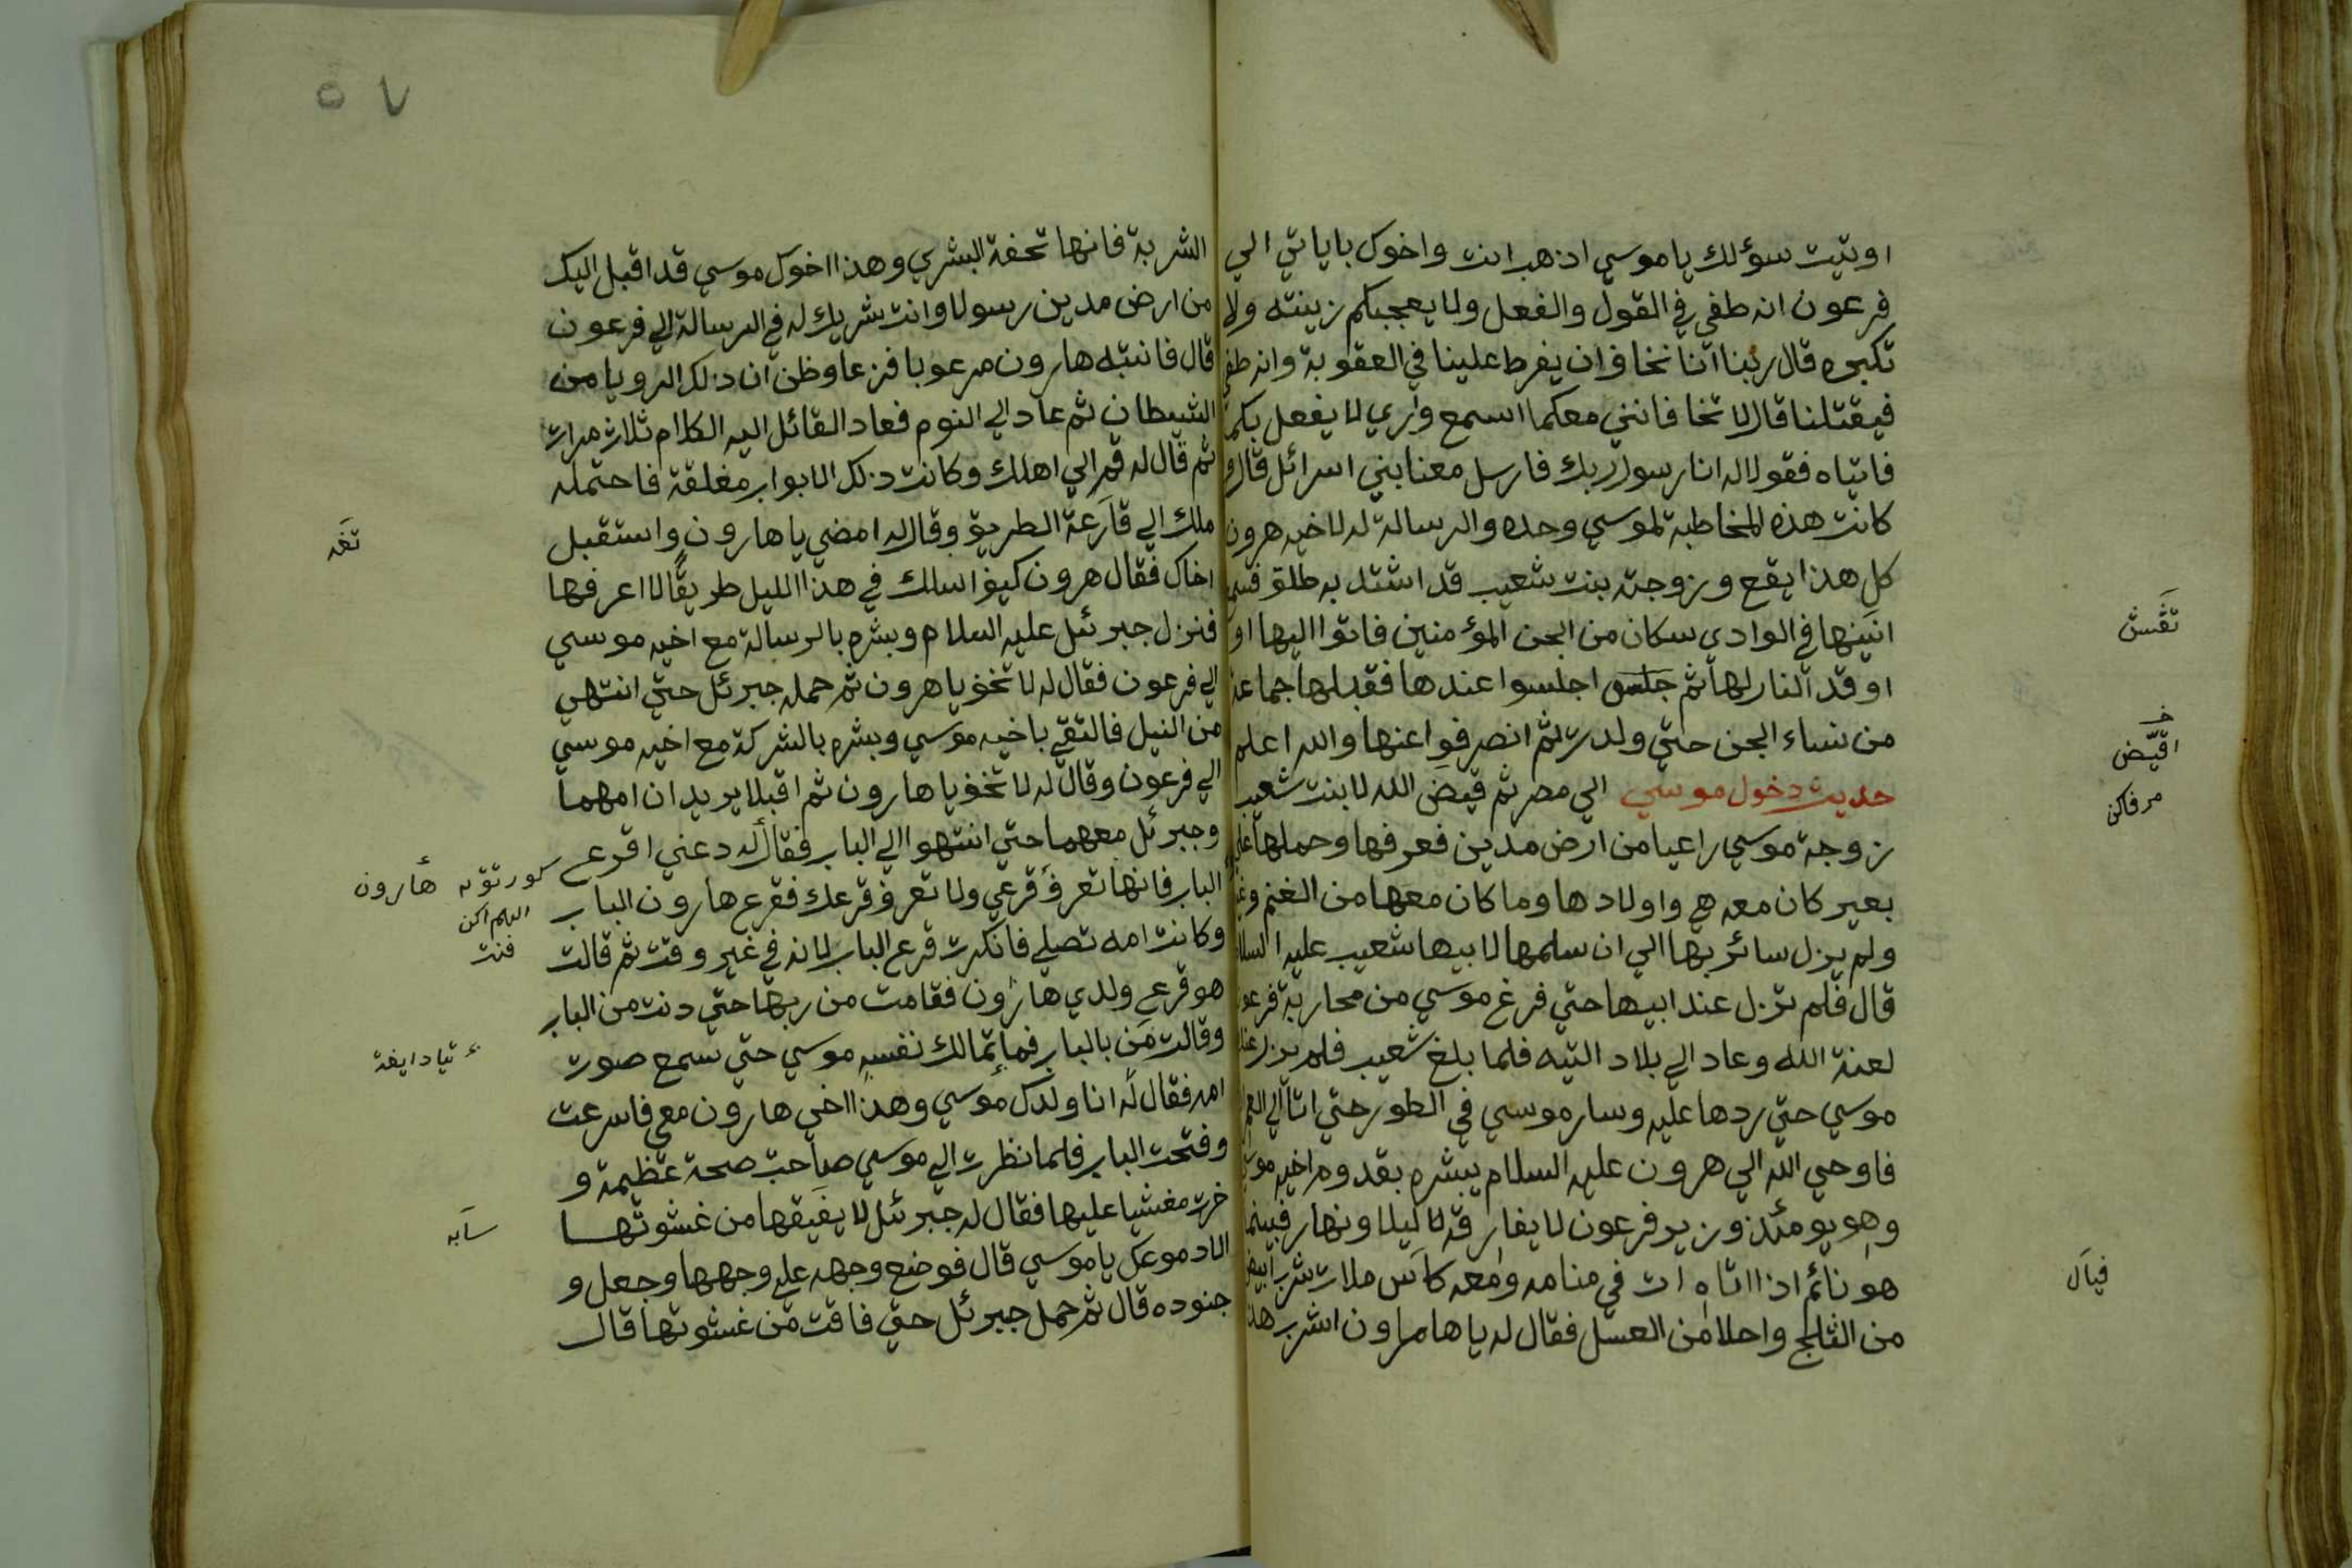 اوتيت سؤلك يا موسي اذهب انت واخوك باياتي الي
فرعون انه طغي في القول والفعل ولا يعجبكم زينته ولا
تكبره قال ربنا اننا نخاف ان يفرط علينا في العقوبة وانه طغي
فيقتلنا قال لا تخافا فانني معكما اسمع واري لا يفعل بكما
فاتياه فقولا له انا رسول ربك فارسل معنا بني اسرائل قال و
كانت هذه المخاطبة لموسي وحده والرسالة له لاخيه هرون
كل هذا يقع وزوجته بنت شعيب قد اشتد به طلق فسمع
انينها في الوادي سكان من الجن المؤمنين فاتوا اليها او
اوقد النار لها ثم جلس اجلسوا عندها فقبلها جماعة
من نساء الجن حتي ولدت ثم انصرفوا عنها والله اعلم
حديث دخول موسي الي مصر ثم قيض الله لابنت شعيب
زوجة موسي راعيا من ارض مدين فعرفها وحملها علي
بعير كان معه هي واولادها وما كان معها من الغنم
ولم يزل سائر بها الي ان سلمها لابيها شعيب عليه السلام
قال فلم تزل عند ابيها حتي فرغ موسي من محاربة فرعون
لعنة الله وعاد الي بلاد التيه فلما بلغ شعيب فلم يزل عند
موسي حتي ردها عليه وسار موسي في الطور حتي اتا الي
فاوحي الله الي هرون عليه السلام يبشره بقدوم اخيه موسي
وهو يومئذ وزير فرعون لا يفارقه لا ليلا ونهار فبينما
هو نائم اذا اتاه ات في منامه ومعه كاس ملات شرب ابيض
من الثلج واحلا من العسل فقال له يا هاهارون اشرب هذا
تقسن
خـ
اقيّض
مرفاكن
فيال
٥٧
الشربة فانها تحفة البشري وهذا اخوك موسي قد اقبل اليك
من ارض مدين رسولا وانت شريك له في الرسالة الي فرعون
قال فانتبه هارون مرعوبا فزعا وظن ان ذلك الرويا من
الشيطان ثم عاد الي النوم فعاد القائل اليه الكلام ثلاث مرات
ثم قال له قم الي اهلك وكانت ذلك الابواب مغلقة فاحتمله
ملك الي قارعة الطريق وقال له امضي يا هارون واستقبل
اخاك فقال هرون كيف اسلك في هذا الليل طريقا لا اعرفها
فنزل جبرئل عليه السلام وبشره بالرسالة مع اخيه موسي
الي فرعون فقال له لا تخف يا هرون ثم حمله جبرئل حتي انتهي
من النيل فالتقي باخيه موسي وبشره بالشركة مع اخيه موسي
الي فرعون وقال له لا تخف يا هارون ثم اقبلا يريدان امهما
وجبرئل معهما حتي انتهوا الي الباب فقال له دعني اقرع
الباب فانها تعرف قرعي ولا تعرف قرعك فقرع هارون الباب
وكانت امه تصلي فانكرت قرع الباب لانه في غير وقت ثم قالت
هو قرع ولدي هارون فقامت من ربها حتي دنت من الباب
وقالت من بالباب فما تمالك نفسه موسي حتي سمع صوت
امه فقال له انا ولدك موسي وهذا اخي هارون معي فاسرعت
وفتحت الباب فلما نظرت الي موسي صاحت صحة عظيمة و
خرت مغشيا عليها فقال له جبرئل لا يفيقها من غشوتها
الا دموعك يا موسي قال فوضع وجهه علي وجهها وجعل و
جنوده قال ثم حمل جبرئل حتي فاقت من غشوتها قال
تغه
هارون
فنت
سابه